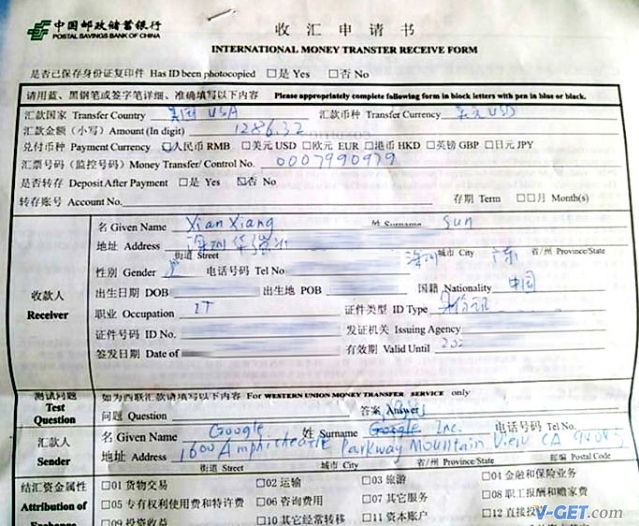 中国邮政储蓄银行
POSTAL SAVINGS BANK OF CHINA
收 汇 申 请 书
INTERNATIONAL MONEY TRANSFER RECEIVE FORM
是否已保存身份证复印件 Has ID been photocopied □是 Yes □否 No
请用蓝、黑钢笔或签字笔详细、准确填写以下内容 Please appropriately complete following form in block letters with pen in blue or black.
汇款国家 Transfer Country 美国 USA 汇款币种 Transfer Currency 美元 USD
汇款金额（小写）Amount (In digit) 1286.32
兑付币种 Payment Currency □人民币 RMB □美元 USD □欧元 EUR □港币 HKD □英镑 GBP □日元 JPY
汇票号码（监控号码）Money Transfer/ Control No. 0007990979
是否转存 Deposit After Payment □是 Yes □否 No
转存账号 Account No. 存期 Term □□月 Month(s)
收款人
Receiver
名 Given Name XianXiang 姓 Surname Sun
地址 Address 深圳华强北 深圳 广东
街道 Street 城市 City 省/州 Province/State
性别 Gender 电话号码 Tel No
出生日期 DOB 出生地 POB 国籍 Nationality 中国
职业 Occupation IT 证件类型 ID Type 身份证
证件号码 ID No. 发证机关 Issuing Agency
签发日期 Date of 有效期 Valid Until 202
测试问题
Test
Question
如为西联汇款请填写以下内容 For WESTERN UNION MONEY TRANSFER SERVICE only
问题 Question 答案 Answer
汇款人
Sender
名 Given Name Google 姓 Surname Google Inc. 电话号码 Tel No.
地址 Address 1600 Amphitheatre Parkway Mountain View CA
街道 Street 城市 City 省/州 Province/State 邮编 Postal Code
结汇资金属性
Attribution of
Exchange
□01 货物交易 □02 运输 □03 旅游 □04 金融和保险业务
□05 专有权利使用费和特许费 □06 咨询费用 □07 其它服务 □08 职工报酬和赡家费
□09 投资收益 □10 其它经常转移 □11 资本账户 □12 直接投
V-GET.com